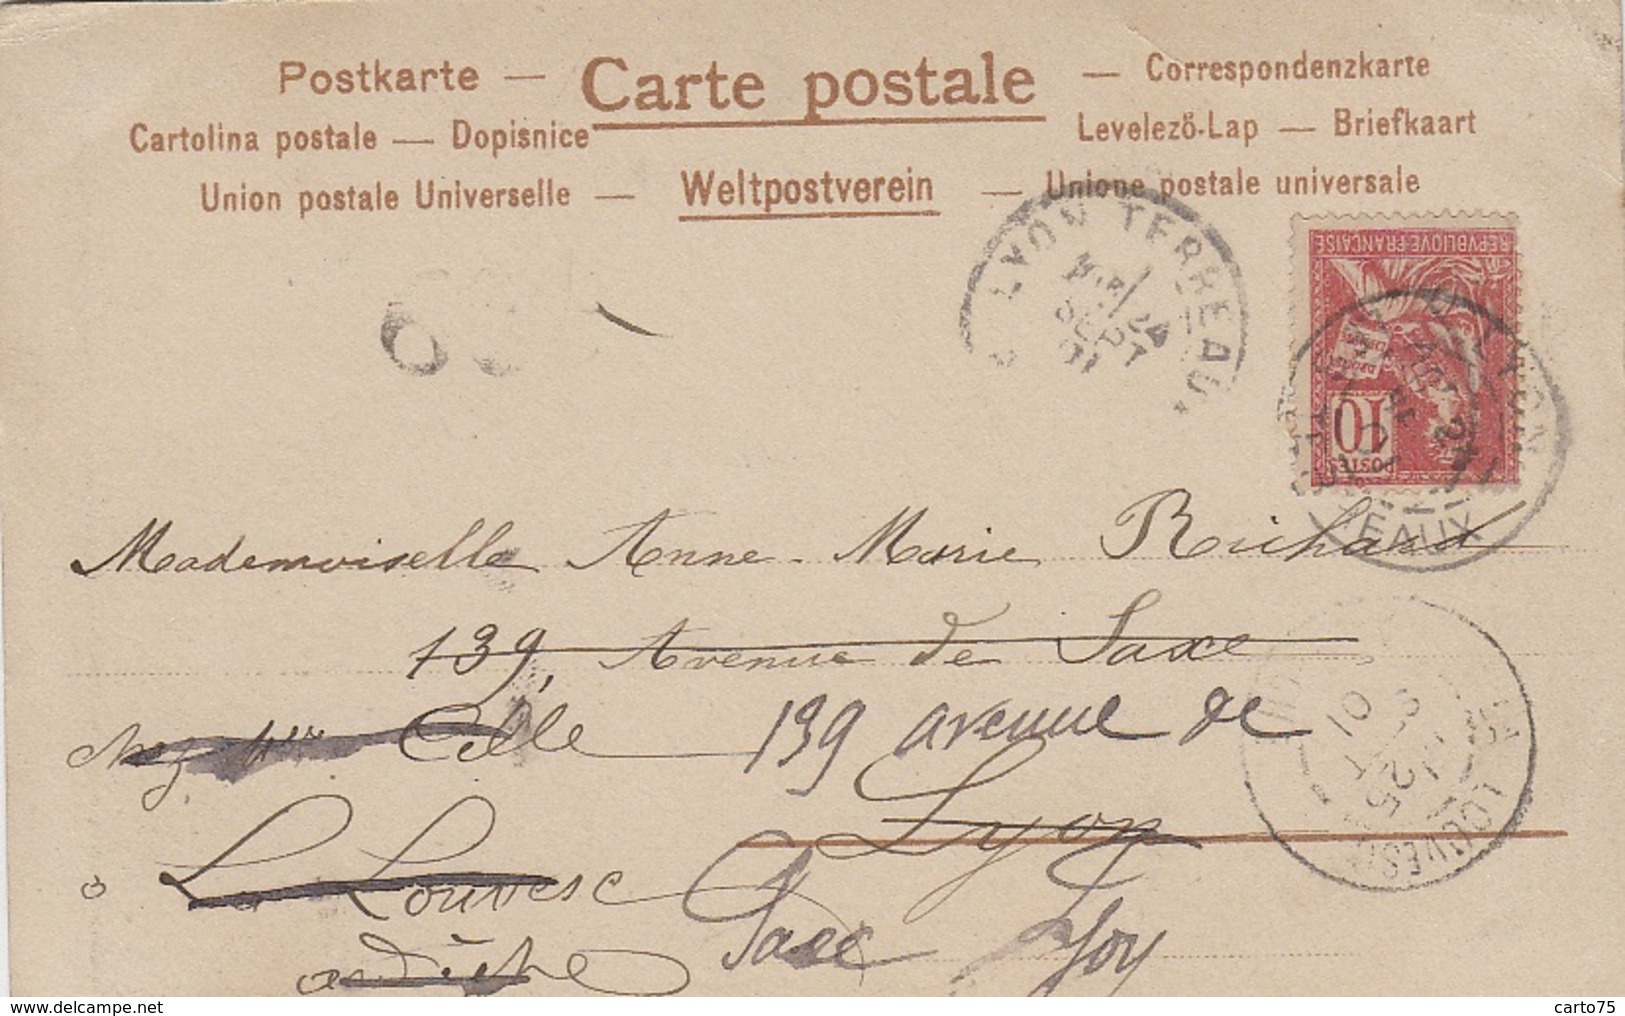 Postkarte — Carte postale — Correspondenzkarte
Cartolina postale — Dopisnice Levelező-Lap — Briefkaart
Union postale Universelle — Weltpostverein — Unione postale universale
LYON TERREAUX
24
SEPT
01
REPVBLIQVE FRANÇAISE
10
POSTES
EAUX
Mademoiselle Anne-Marie Richard
139, Avenue de Saxe
chez Mr 139 avenue de
Lyon
à La Louvesc Saxe Lyon
ardèche
LA LOUVESC
25
SEPT
01
delcampe.net
carto75